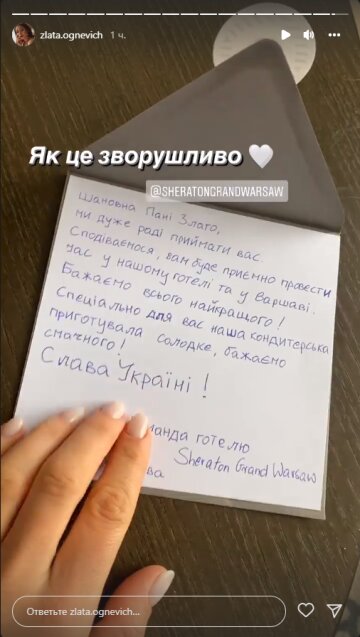 zlata.ognevich 1 ч.
Як це зворушливо
@SHERATONGRANDWARSAW
Шановна Пані Злато,
ми дуже раді приймати вас.
Сподіваємося, вам буде приємно провести
час у нашому готелі та у Варшаві.
Бажаємо всього найкращого!
Спеціально для вас наша кондитерська
приготувала солодке, бажаємо
смачного!
Слава Україні!
манда готелю
Sheraton Grand Warsaw
ва
Ответьте zlata.ognevich...